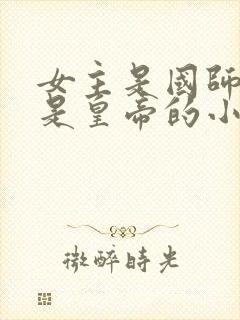 女主是國師
是皇帝的小
微醉時光